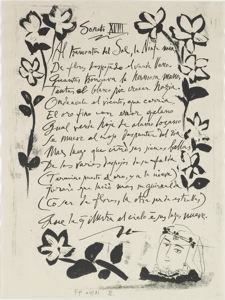 Soneto XVIII
Al tramontar del Sol, la Ninfa mia
De flores despojando el verde llano
Quantas troncava la hermosa mano
Tantas el blanco pie crecer hazia.
Ondeavale el viento, que corria
El oro fino con error galano
Qual verde hoja de alamo lozano
Se mueve al rojo despuntar del dia
Mas luego que ciñò sus sienes bellas
De los varios despojos de su falda
(Termino puesto al oro, y a la nieve)
Jurarè que luciò mas su guirnalda
(Con ser de flores, la otra ser de estrellas)
Que la q illustra el cielo en luzes nueve.